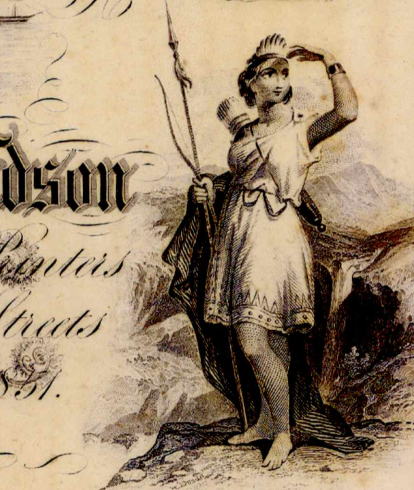 dson
Printers
Streets
1851.